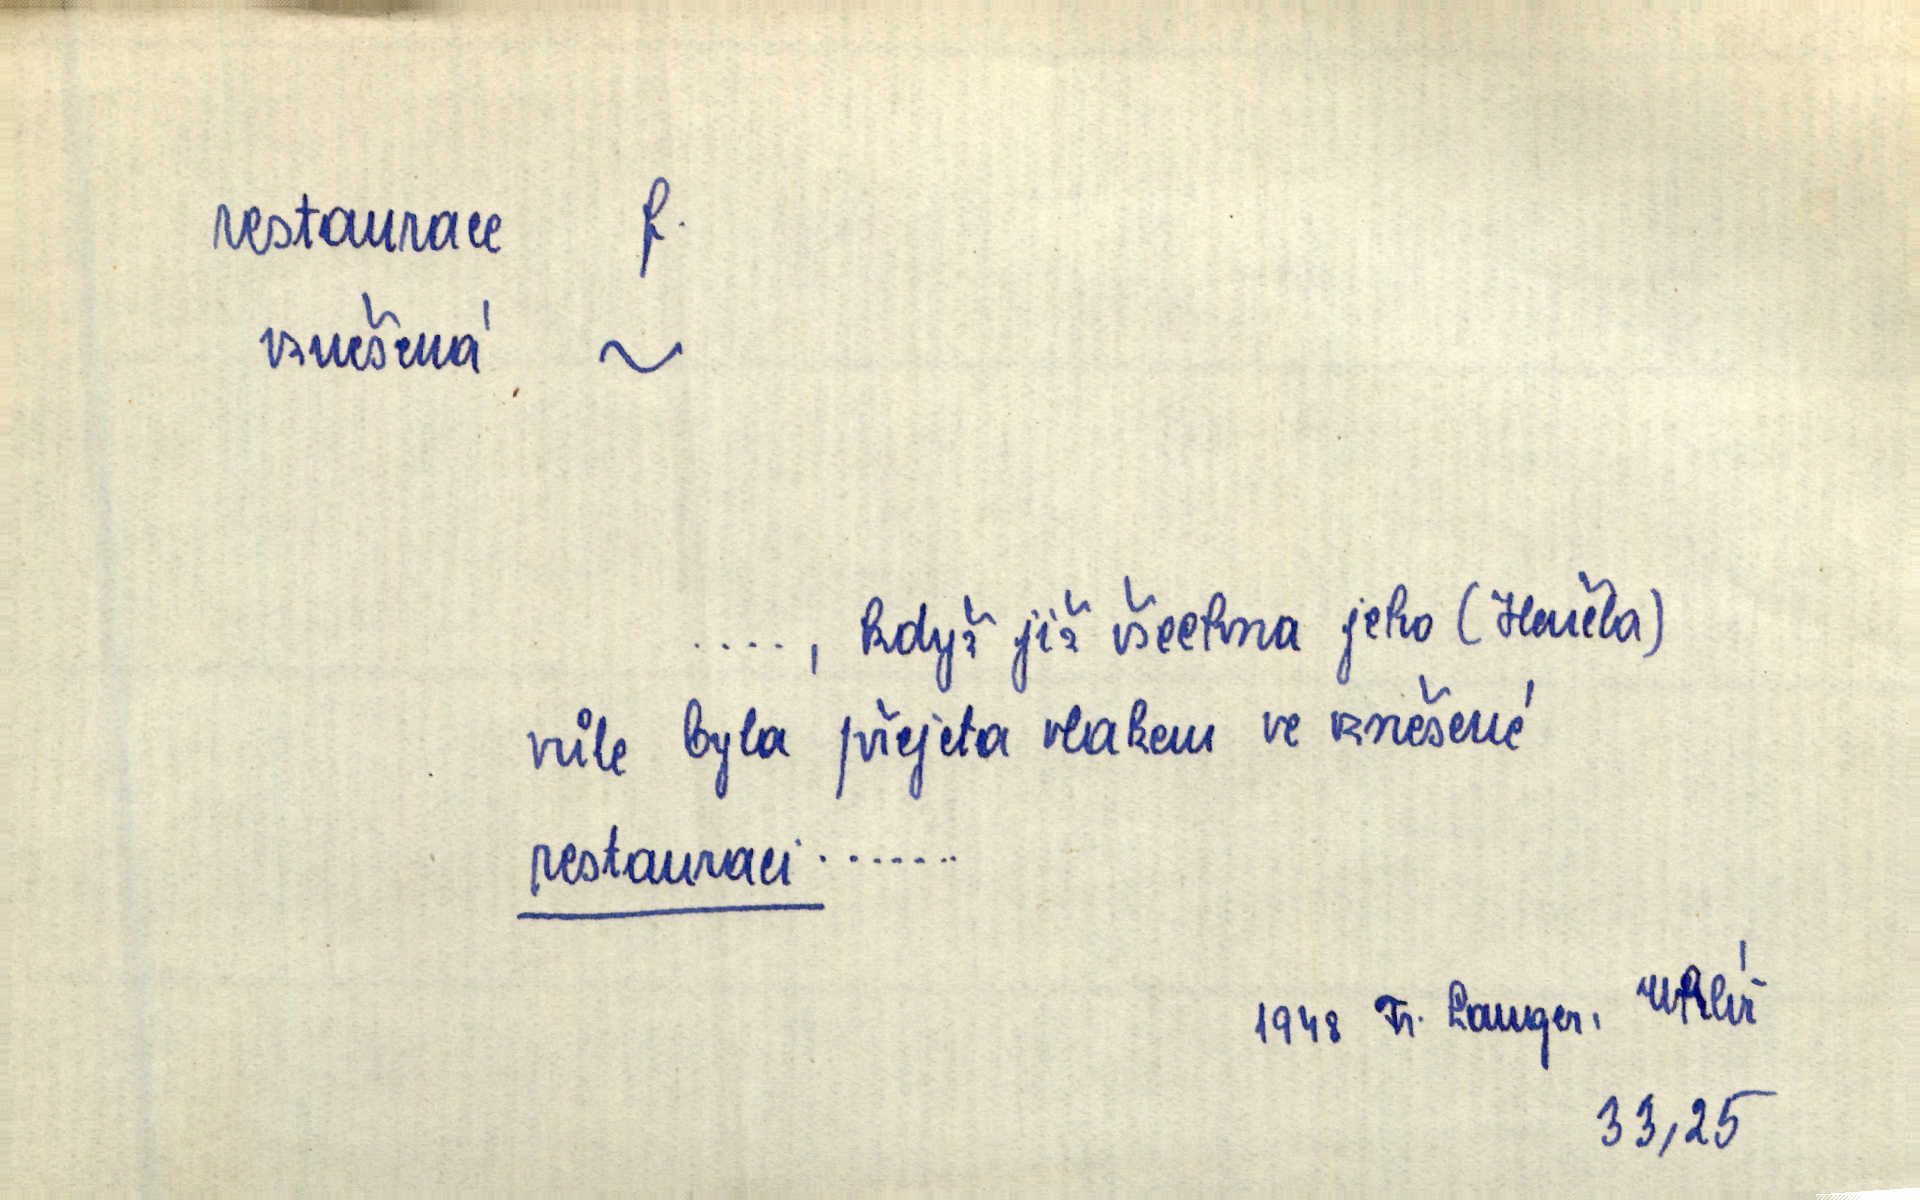 restaurace f.
vznešená ~
...., když již všechna jeho (Haněla)
vůle byla přejeta vlakem ve vznešené
restauraci .......
1948 Fr. Langer,
33,25